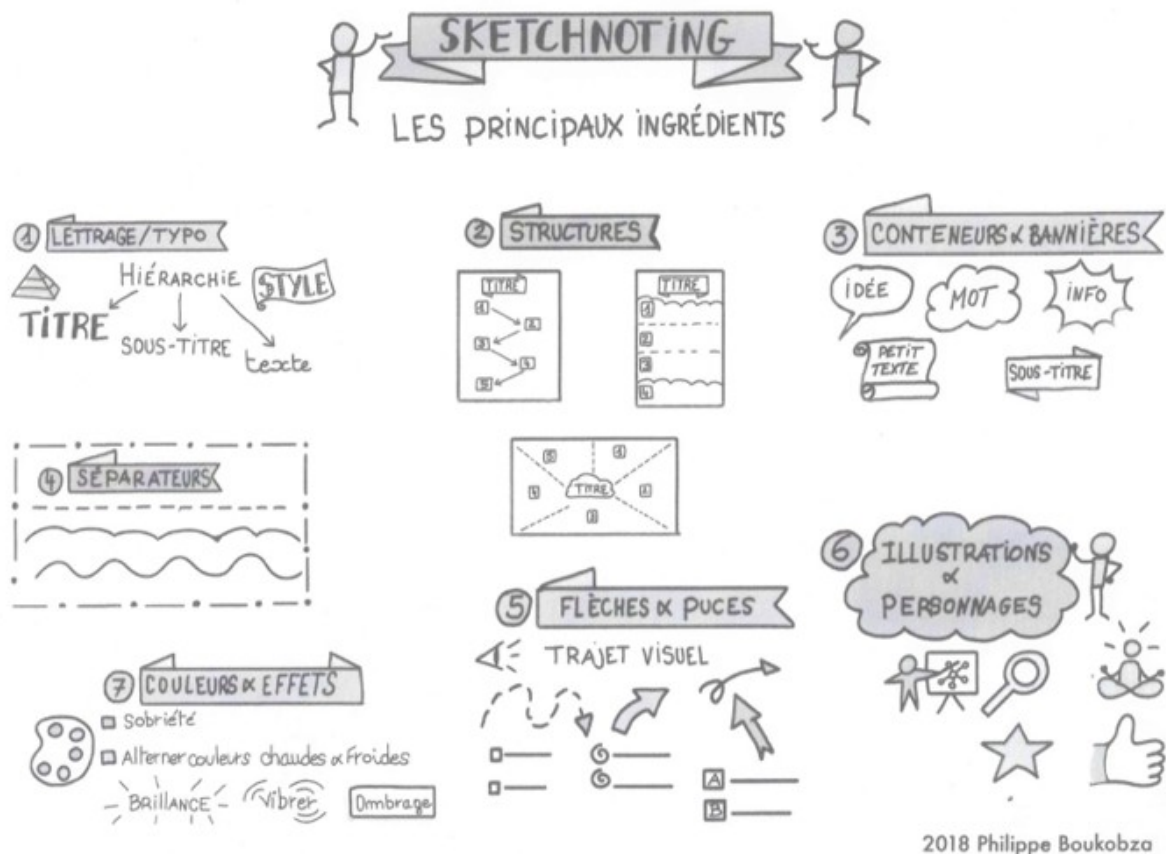 SKETCHNOTING
LES PRINCIPAUX INGRÉDIENTS
1 LETTRAGE/TYPO
HIÉRARCHIE
STYLE
TITRE
SOUS-TITRE
texte
2 STRUCTURES
TITRE
1
2
3
4
5
TITRE
1
2
3
4
TITRE
5
1
4
2
3
3 CONTENEURS & BANNIÈRES
IDÉE
MOT
INFO
PETIT
TEXTE
SOUS-TITRE
4 SÉPARATEURS
5 FLÈCHES & PUCES
TRAJET VISUEL
A
B
6 ILLUSTRATIONS
&
PERSONNAGES
7 COULEURS & EFFETS
Sobriété
Alterner couleurs chaudes & froides
BRILLANCE
Vibrer
Ombrage
2018 Philippe Boukobza